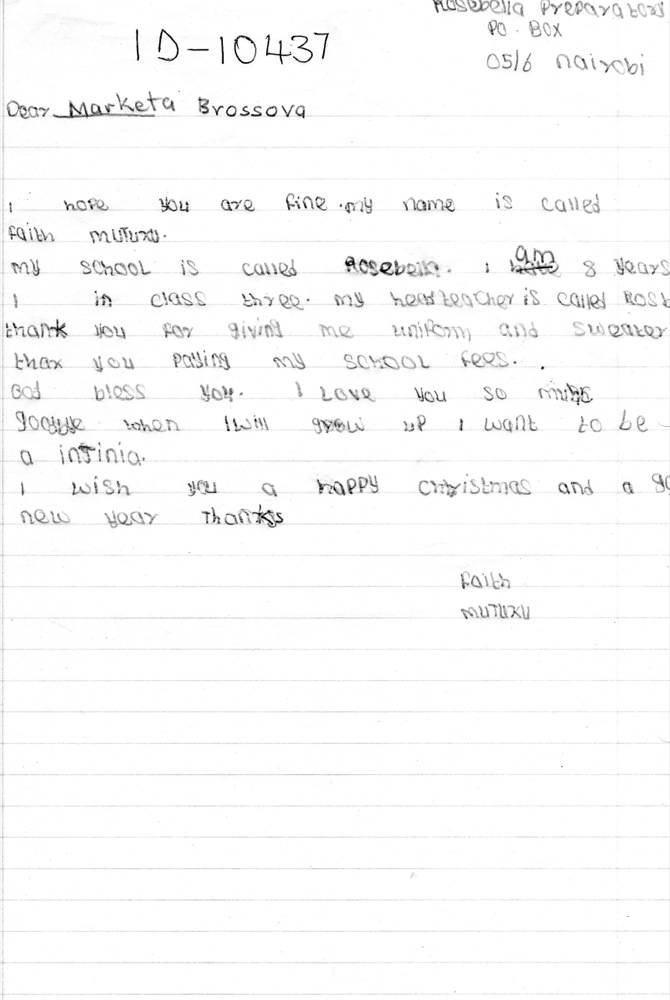 Rosebella Preparatory
PO. BOX
ID-10437
0516 nairobi
Dear Marketa Brossova
I hope you are fine. my name is called
faith mutuxu.
my school is called Rosebella. I am 8 years
I in class three. my headteacher is called Rose
thank you for giving me uniform and sweater
thax you paying my school fees.
God bless you. I Love you so
when I will grow up I want to be
a
I wish you a happy christmas and a go
new year thanks
faith
mutuxu